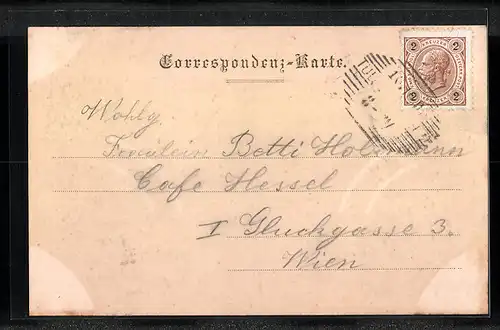 Correspondenz-Karte.
2 2
2 2
Wohlg.
Fräulein Betti
Cafe Hessel
I Gluckgasse 3.
Wien